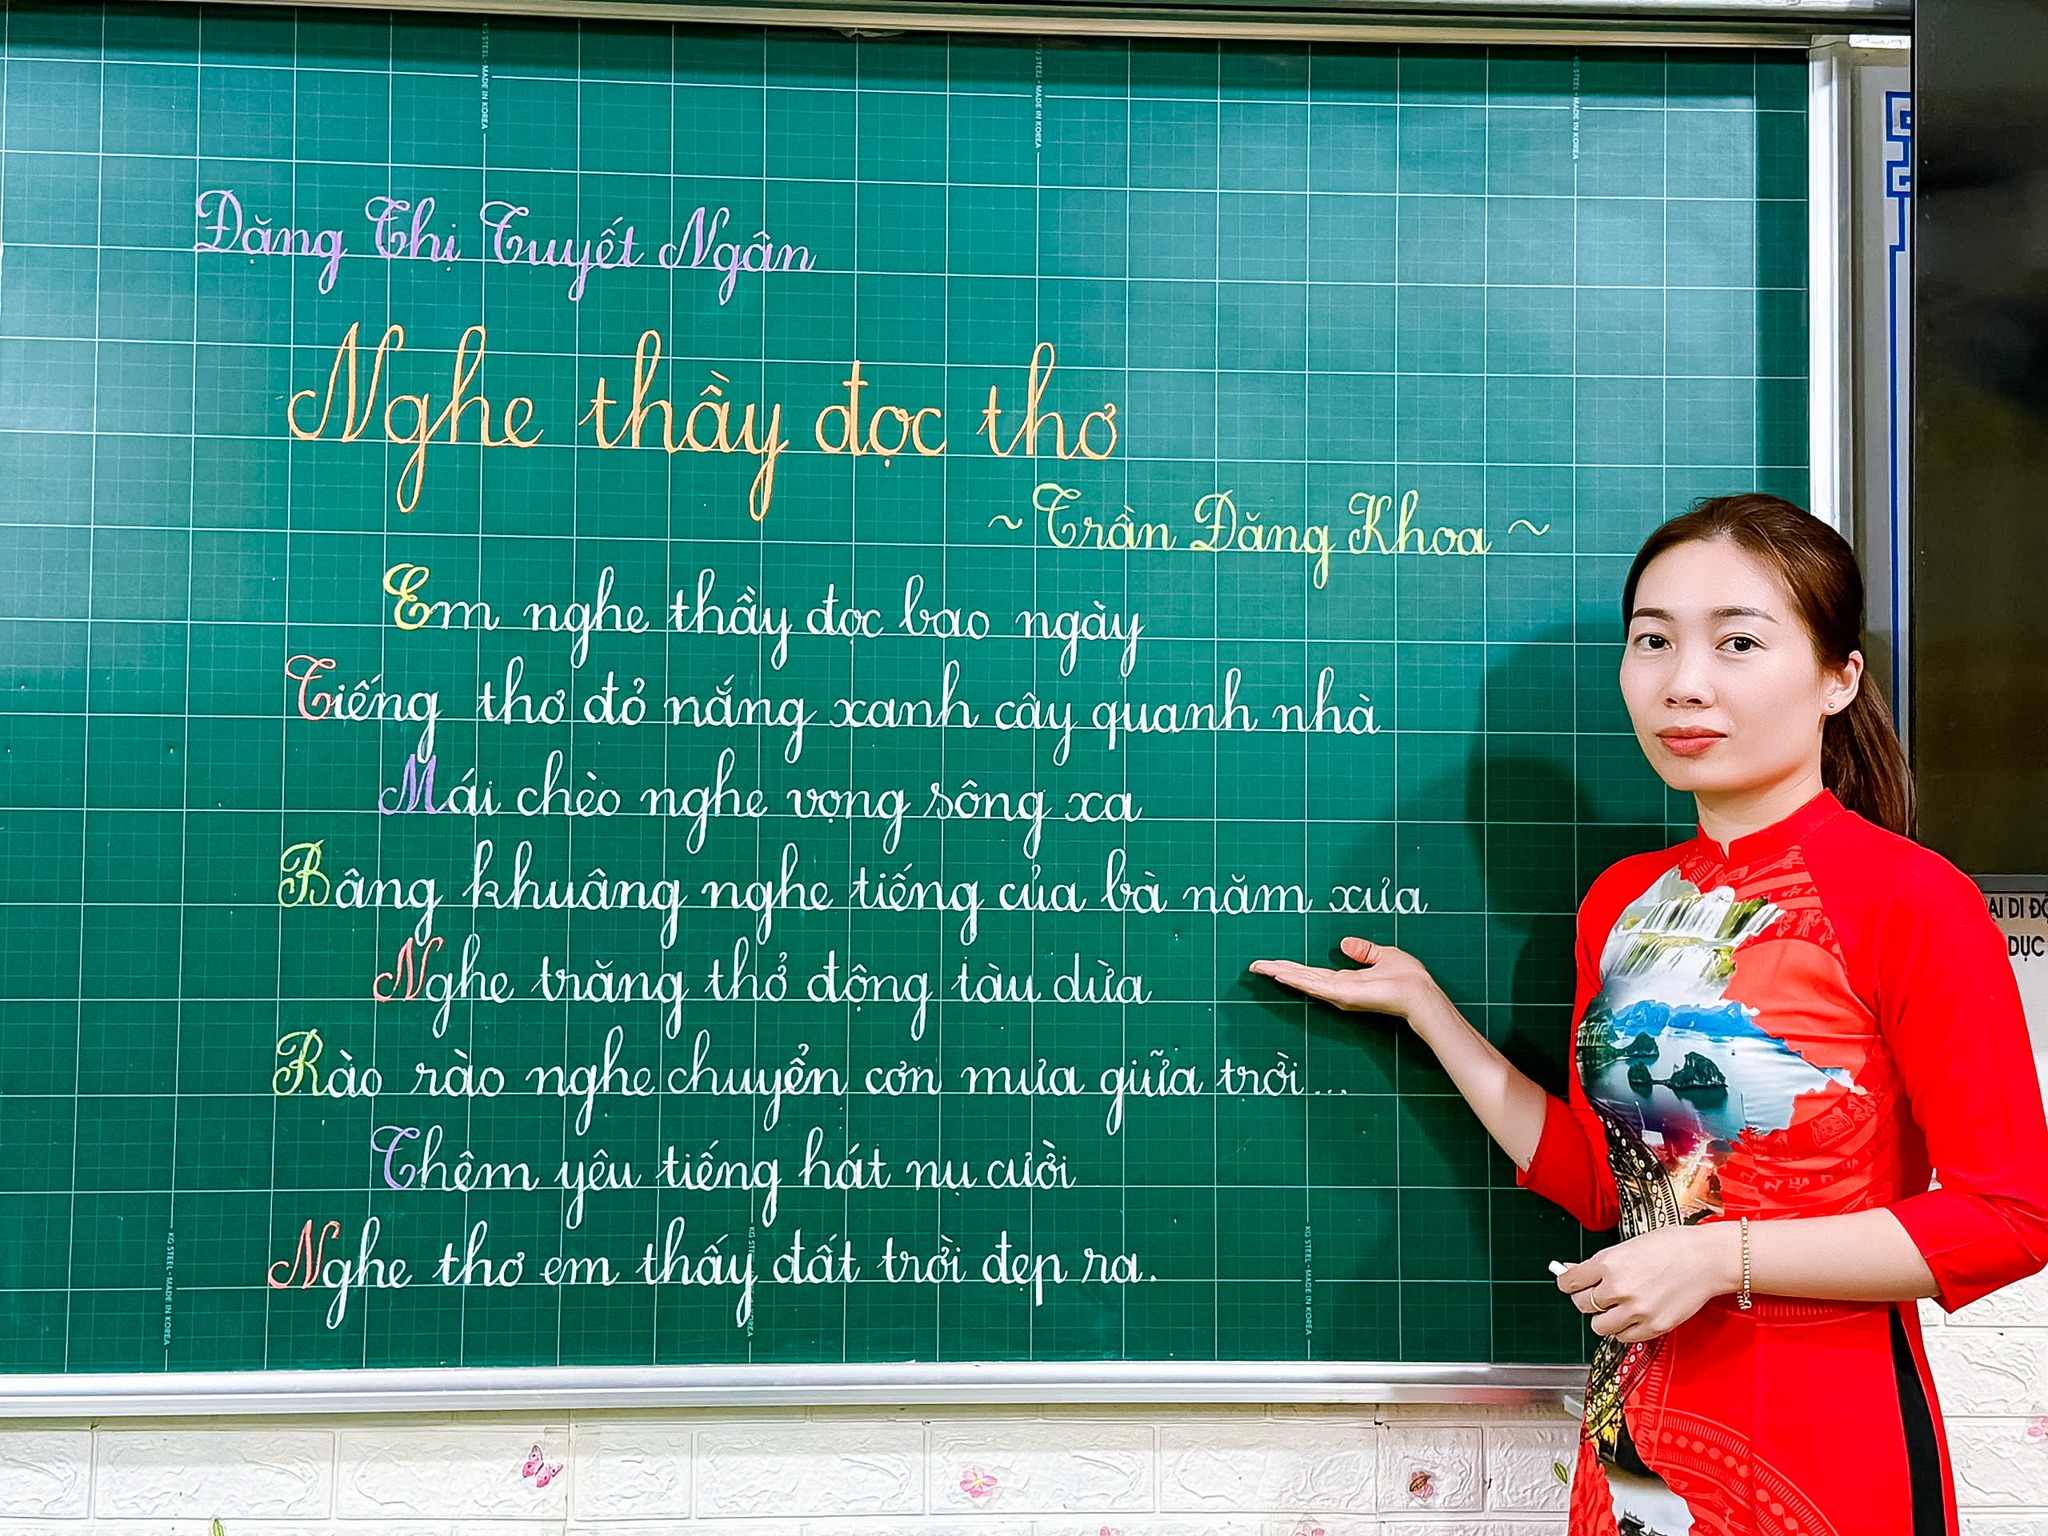 KG STEEL - MADE IN KOREA
KG STEEL - MADE IN KOREA
KG STEEL - MADE IN KOREA
Đặng Thị Tuyết Ngân
Nghe thầy đọc thơ
~ Trần Đăng Khoa ~
Em nghe thầy đọc bao ngày
Tiếng thơ đỏ nắng xanh cây quanh nhà
Mái chèo nghe vọng sông xa
Bâng khuâng nghe tiếng của bà năm xưa
Nghe trăng thở động tàu dừa
Rào rào nghe chuyển cơn mưa giữa trời...
Thêm yêu tiếng hát nụ cười
Nghe thơ em thấy đất trời đẹp ra.
KG STEEL - MADE IN KOREA
KG STEEL - MADE IN KOREA
KG STEEL - MADE IN KOREA
AI DI ĐỘ
DỤC